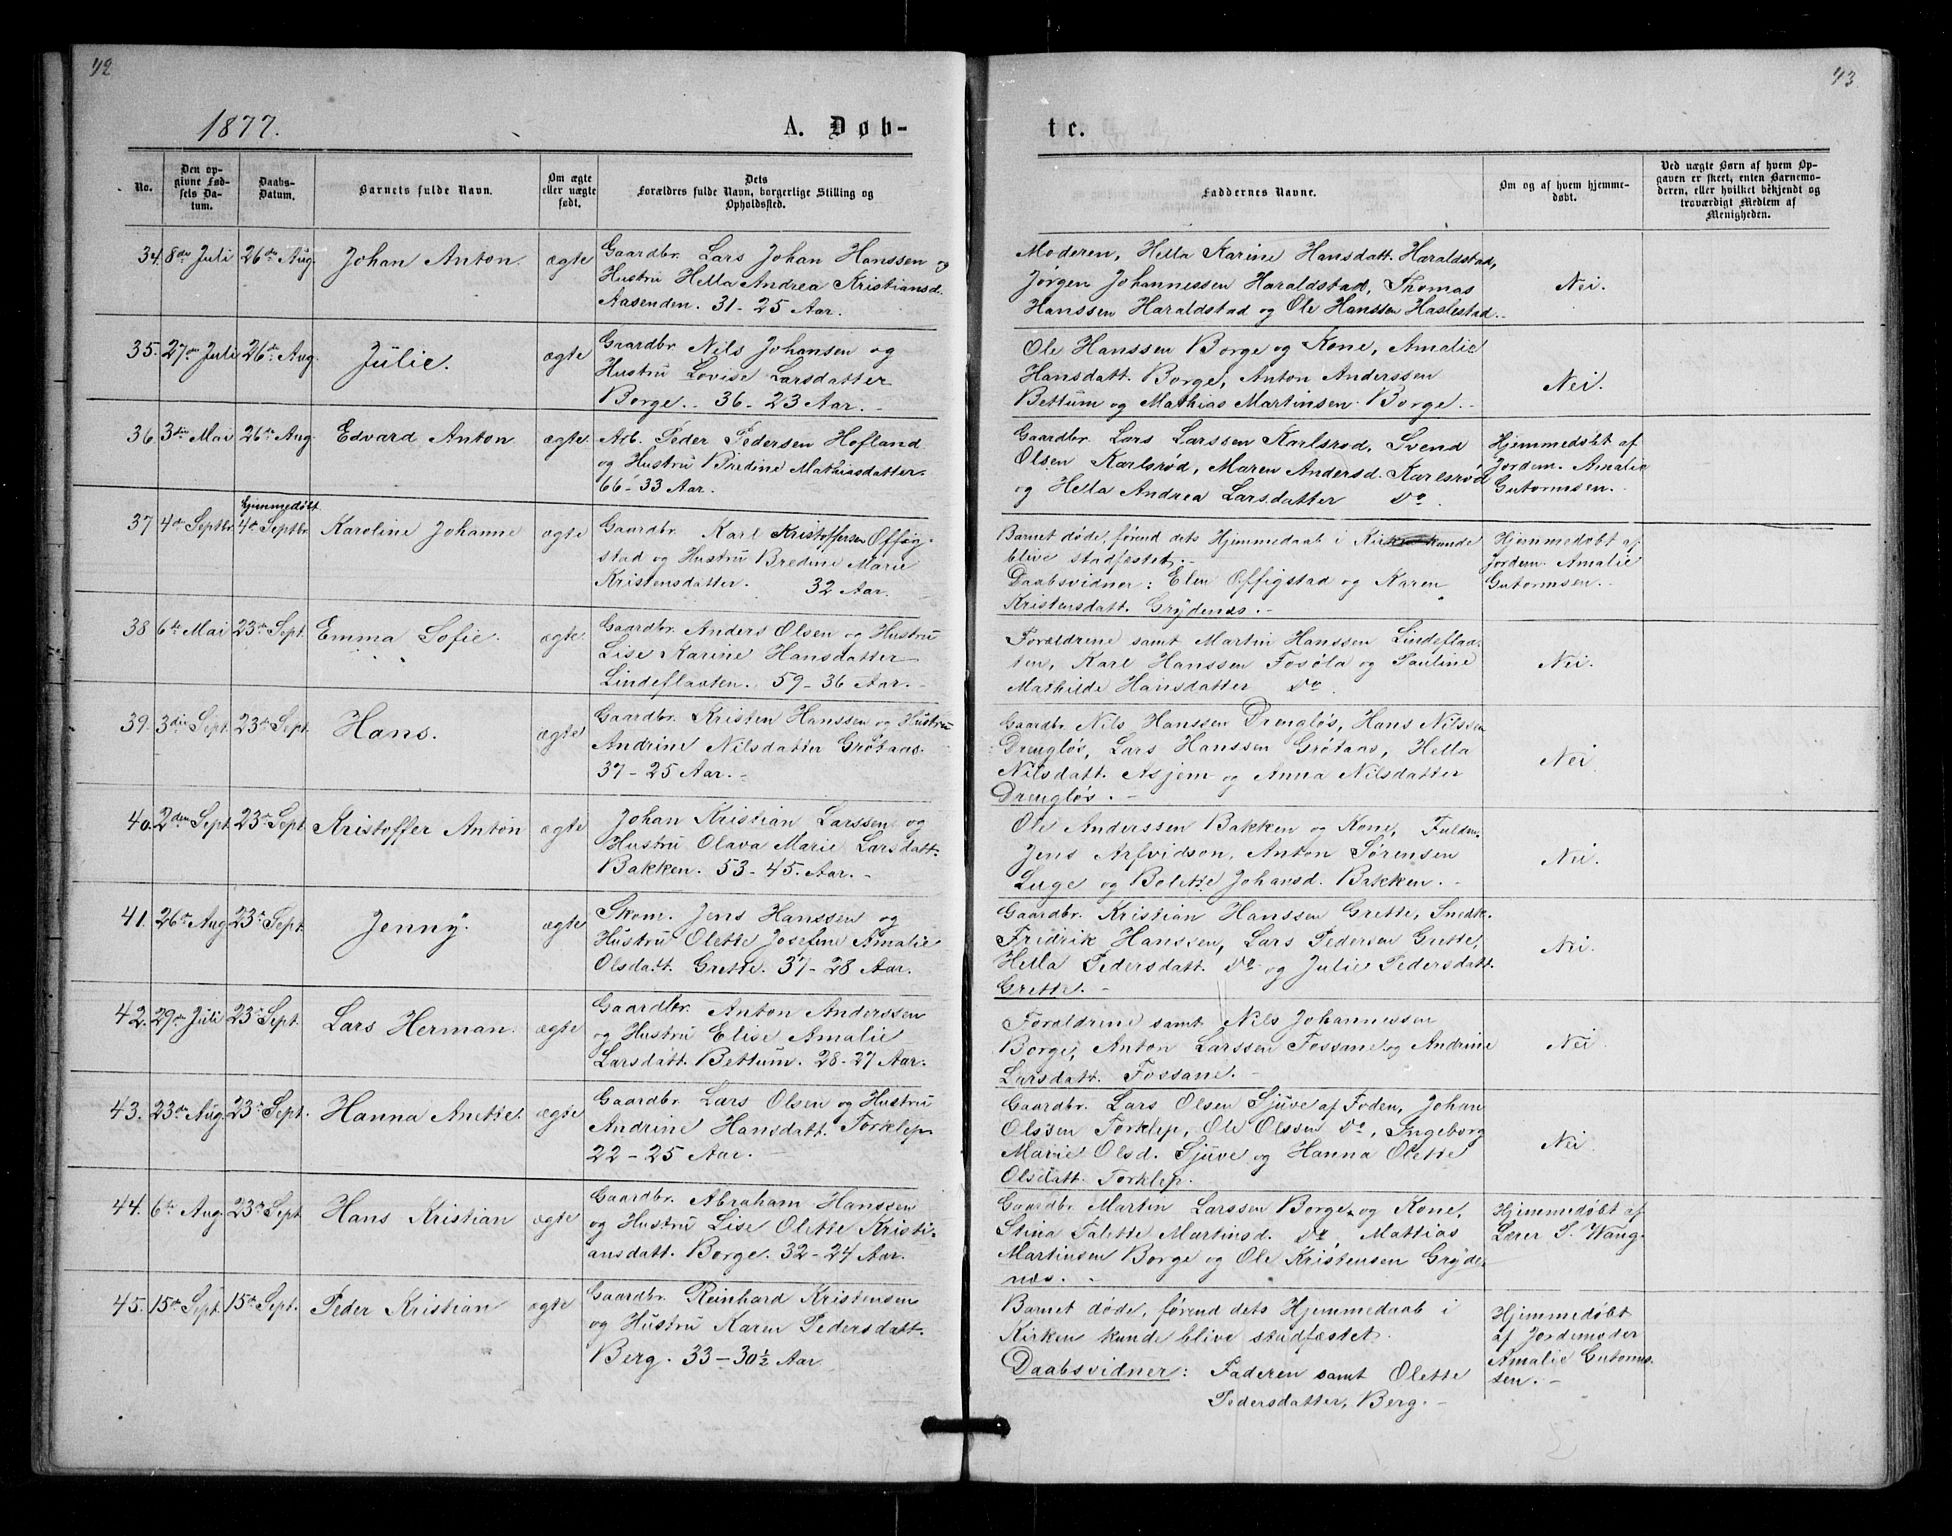 42
1877.
A. Døb-
No.
Den op-
givne Fød-
sels Da-
tum.
Daabs-
Datum.
Barnets fulde Navn.
Om ægte
eller uægte
født.
Dets
Forældres fulde Navn, borgerlige Stilling og
Opholdssted.
34. 8de Juli 26de Aug. Johan Anton. ægte
Gaardbr. Lars Johan Hanssen og
Hustru Hella Andrea Kristiansd.
Aasenden. 31 - 25 Aar.
35. 27de Juli 26de Aug. Julie. ægte
Gaardbr. Nils Johansen og
Hustru Lovise Larsdatter
Borge. 36 - 23 Aar.
36. 3die Mai 26de Aug. Edvard Anton ægte
Arb. Peder Pedersen Hofland
og Hustru Bredine Mathiasdatter
66 - 33 Aar.
37 4de Septbr. Hjemmedøbt 4de Septbr. Karoline Johanne ægte
Gaardbr. Karl Kristoffersen Offig-
stad og Hustru Bredine Marie
Kristensdatter. 32 Aar.
38 6te Mai 23de Sept. Emma Sofie. ægte
Gaardbr. Anders Olsen og Hustru
Lise Karine Hansdatter
Lindeflaaten. 59 - 36 Aar.
39. 3die Sept. 23de Sept. Hans. ægte
Gaardbr. Kristen Hanssen og Hustru
Andrine Nilsdatter Grøtaas.
37 - 25 Aar.
40. 2den Sept. 23de Sept. Kristoffer Anton ægte
Johan Kristian Larssen og
Hustru Olava Marie Larsdatt.
Bakken. 53 - 45. Aar.
41. 26de Aug 23de Sept. Jenny. ægte
Skom. Jens Hanssen og
Hustru Olette Josefine Amalie
Olsdatt. Grette. 37 - 28 Aar.
42. 29de Juli 23de Sept. Lars Herman. ægte
Gaardbr. Anton Anderssen
og Hustru Elise Amalie
Larsdatt. Bettum. 28 - 27 Aar.
43. 23de Aug. 23de Sept. Hanna Anette. ægte
Gaardbr. Lars Olsen og Hustru
Andrine Hansdatt. Torklep
22 - 25 Aar.
44. 6te Aug 23de Sept. Hans Kristian ægte
Gaardbr. Abraham Hanssen
og Hustru Lise Olette Kristi-
ansdatt. Borge. 32 - 24 Aar.
45. 15de Sept. 15de Sept. Peder Kristian ægte
Gaardbr. Reinhard Kristensen
og Hustru Karen Pedersdatt.
Berg. 33 - 30½ Aar.
43
te.
Faddernes Navne.
Om og af hvem hjemme-
døbt.
Ved uægte Børn af hvem Op-
gaven er skeet, enten Barnemo-
deren, eller hvilket bekjendt og
troværdigt Medlem af
Menigheden.
Moderen, Hella Karine Hansdatt. Haraldstad,
Jørgen Johannessen Haraldstad, Thomas
Hanssen Haraldstad og Ole Hanssen Haslestad.
Nei.
Ole Hanssen Borge og Kone, Amalie
Hansdatt. Borge, Anton Anderssen
Bettum og Mathias Martinsen Borge.
Nei.
Gaardbr. Lars Larssen Karlsrød, Svend
Olsen Karlsrød, Maren Andersd. Karlsrød
og Hella Andrea Larsdatter Do.
Hjemmedøbt af
Jordem. Amalie
Gutormsen.
Barnet døde, førend dets Hjemmedaab i Kirken kunde
blive stadfestet.
Daabsvidner: Elen Offigstad og Karen
Kristensdatt. Grydenæs.
Hjemmedøbt af
Jordem. Amalie
Gutormsen.
Forældrene samt Martin Hanssen Lindeflaa-
ten, Karl Hanssen Fosøla og Pauline
Mathilde Hansdatter Do.
Nei.
Gaardbr. Nils Hanssen Drengløs, Hans Nilssen
Drengløs, Lars Hanssen Grøtaas, Hella
Nilsdatt. Asjem og Anna Nilsdatter
Drengløs.
Nei
Ole Anderssen Bakken og Kone, Fuldm.
Jens Arfvidson, Anton Sørensen
Luge og Bolette Johansd. Bakken.
Nei.
Gaardbr. Kristian Hanssen Grette, Snedk.
Fridrik Hanssen, Lars Pedersen Grette,
Hella Pedersdatt. Do og Julie Pedersdatt.
Grette.
Nei.
Forældrene samt Nils Johannessen
Borge, Anton Larssen Fossane og Andrine
Larsdatt. Fossane.
Nei
Gaardbr. Lars Olsen Sjuve af Foden, Johan
Olssen Torklep, Ole Olssen Do, Ingeborg
Marie Olsd. Sjuve og Hanna Olette
Olsdatt. Torklep.
Nei
Gaardbr. Martin Larssen Borge og Kone,
Stina Talette Martinsd. Do, Mattias
Martinsen Borge og Ole Kristensen Gryde-
næs.
Hjemmedøbt af
Lærer P. Wang.
Barnet døde, førend dets Hjemmedaab i
Kirken kunde blive stadfæstet.
Daabsvidner: Faderen samt Olette
Pedersdatter, Berg.
Hjemmedøbt
af Jordemoder
Amalie Gutorms-
sen.